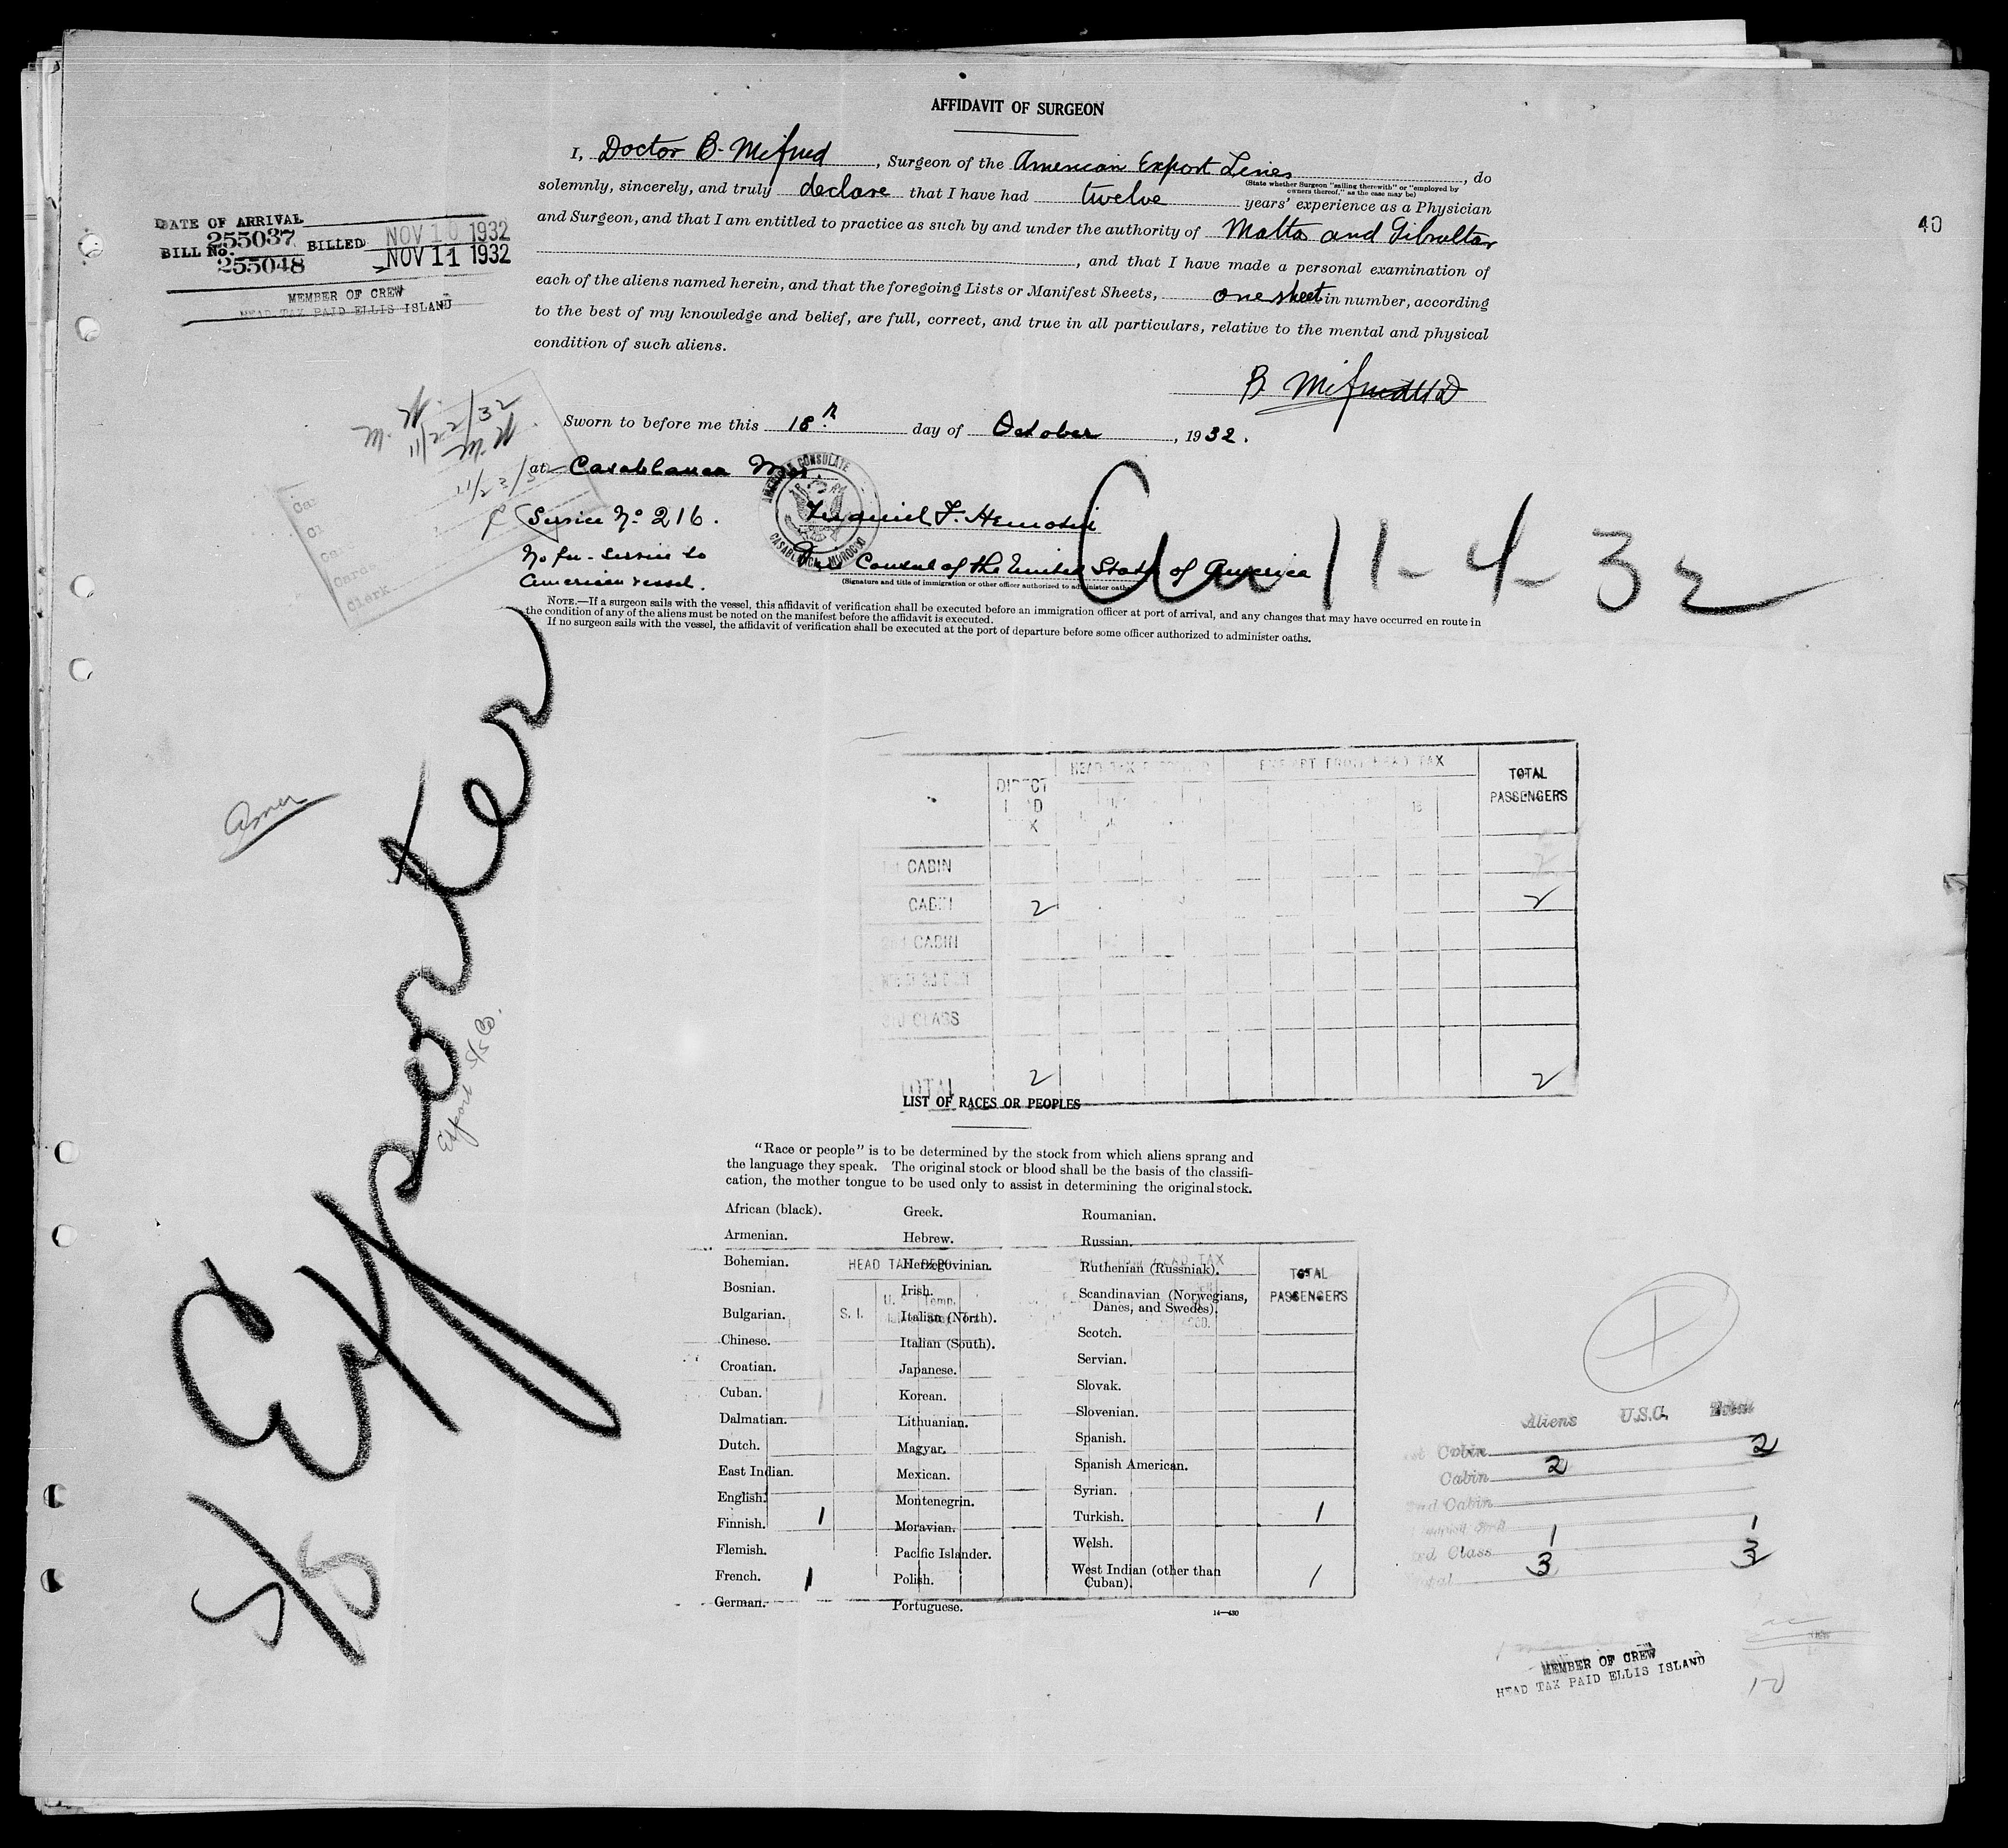 AFFIDAVIT OF SURGEON
I, Doctor B. Mifsud, Surgeon of the American Export Lines, do
(State whether Surgeon "sailing therewith" or "employed by owners thereof," as the case may be)
solemnly, sincerely, and truly declare that I have had twelve years' experience as a Physician
and Surgeon, and that I am entitled to practice as such by and under the authority of Malta and Gibraltar
, and that I have made a personal examination of
each of the aliens named herein, and that the foregoing Lists or Manifest Sheets, one sheet in number, according
to the best of my knowledge and belief, are full, correct, and true in all particulars, relative to the mental and physical
condition of such aliens.
B. Mifsud MD
Sworn to before me this 18th day of October, 1932.
at Casablanca Mor
AMERICAN CONSULATE
CASABLANCA, MOROCCO
Service No 216.
No fee - service to
American vessel.
Consul of the United States of America
(Signature and title of immigration or other officer authorized to administer oaths)
NOTE.—If a surgeon sails with the vessel, this affidavit of verification shall be executed before an immigration officer at port of arrival, and any changes that may have occurred en route in
the condition of any of the aliens must be noted on the manifest before the affidavit is executed.
If no surgeon sails with the vessel, the affidavit of verification shall be executed at the port of departure before some officer authorized to administer oaths.
DATE OF ARRIVAL
255037
BILL No. BILLED NOV 10 1932
255048 NOV 11 1932
MEMBER OF CREW
HEAD TAX PAID ELLIS ISLAND
40
11/22/32
Clerk
11-4-32
S/S Exporter
Amer
Export S/S Co.
DIRECT HEAD TAX
EXEMPT FROM HEAD TAX
TOTAL PASSENGERS
CABIN
CABIN 2 2
CABIN
3RD CLASS
TOTAL 2 2
LIST OF RACES OR PEOPLES
"Race or people" is to be determined by the stock from which aliens sprang and
the language they speak. The original stock or blood shall be the basis of the classifi-
cation, the mother tongue to be used only to assist in determining the original stock.
African (black). Greek. Roumanian.
Armenian. Hebrew. Russian.
Bohemian. Herzegovinian. Ruthenian (Russniak).
Bosnian. Irish. Scandinavian (Norwegians,
Danes, and Swedes).
Bulgarian. Italian (North). Scotch.
Chinese. Italian (South). Servian.
Croatian. Japanese. Slovak.
Cuban. Korean. Slovenian.
Dalmatian. Lithuanian. Spanish.
Dutch. Magyar. Spanish American.
East Indian. Mexican. Syrian.
English. Montenegrin. Turkish.
Finnish. Moravian. Welsh.
Flemish. Pacific Islander. West Indian (other than
Cuban).
French. Polish.
German. Portuguese.
14—430
HEAD TAX
HEAD TAX
TOTAL PASSENGERS
S. I.
Temp.
1 1
1 1
Aliens U.S.C. Total
Cabin 2
Cabin 2
2nd Cabin
3rd Class 1 1
Total 3 3
MEMBER OF CREW
HEAD TAX PAID ELLIS ISLAND